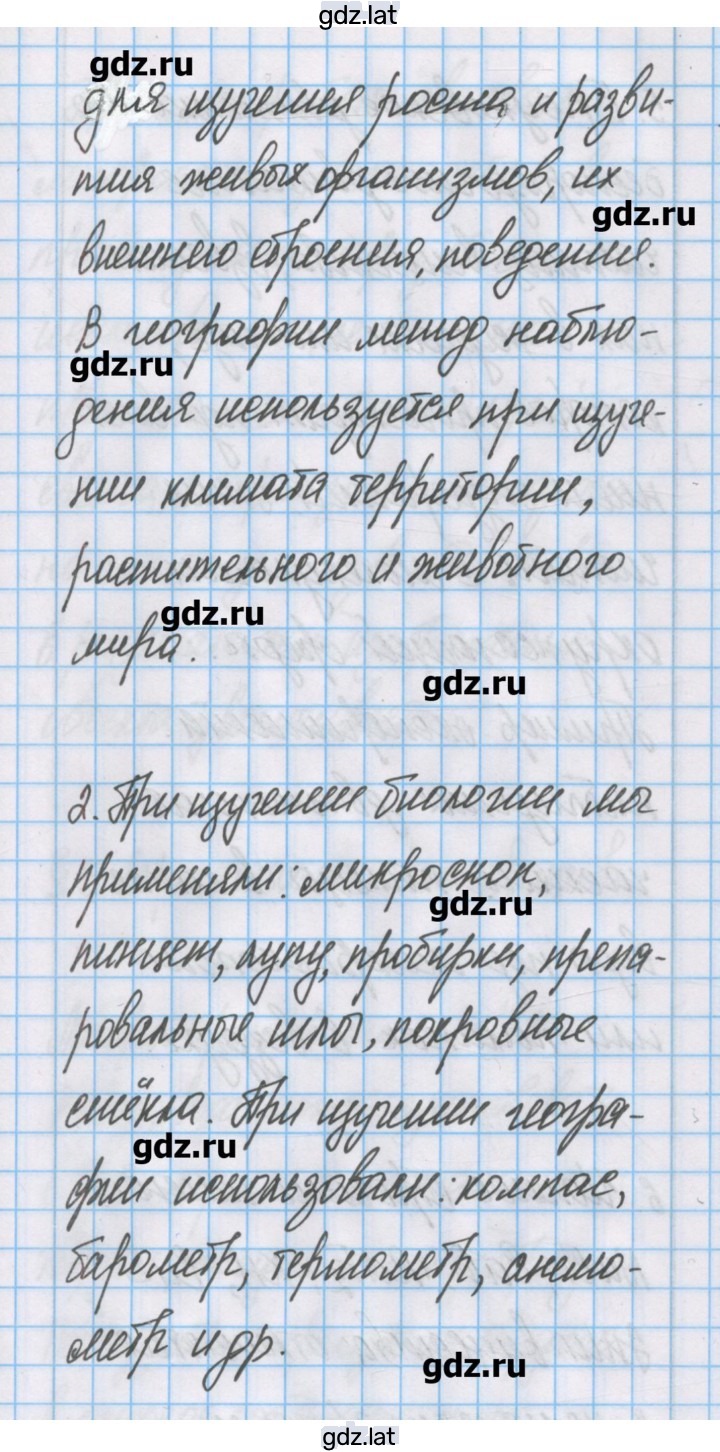 gdz.lat
gdz.ru
для изучения роста и разви-
тия живых организмов, их
gdz.ru
внешнего строения, поведения.
В географии метод наблю-
gdz.ru
дения используется при изуче-
нии климата территории,
растительного и животного
gdz.ru
мира.
gdz.ru
2. При изучении биологии мы
применяли: микроскоп,
gdz.ru
пинцет, лупу, пробирки, препа-
ровальные иглы, покровные
стёкла. При изучении геогра-
gdz.ru
фии использовали: компас,
барометр, термометр, анемо-
метр и др.
gdz.ru
gdz.lat